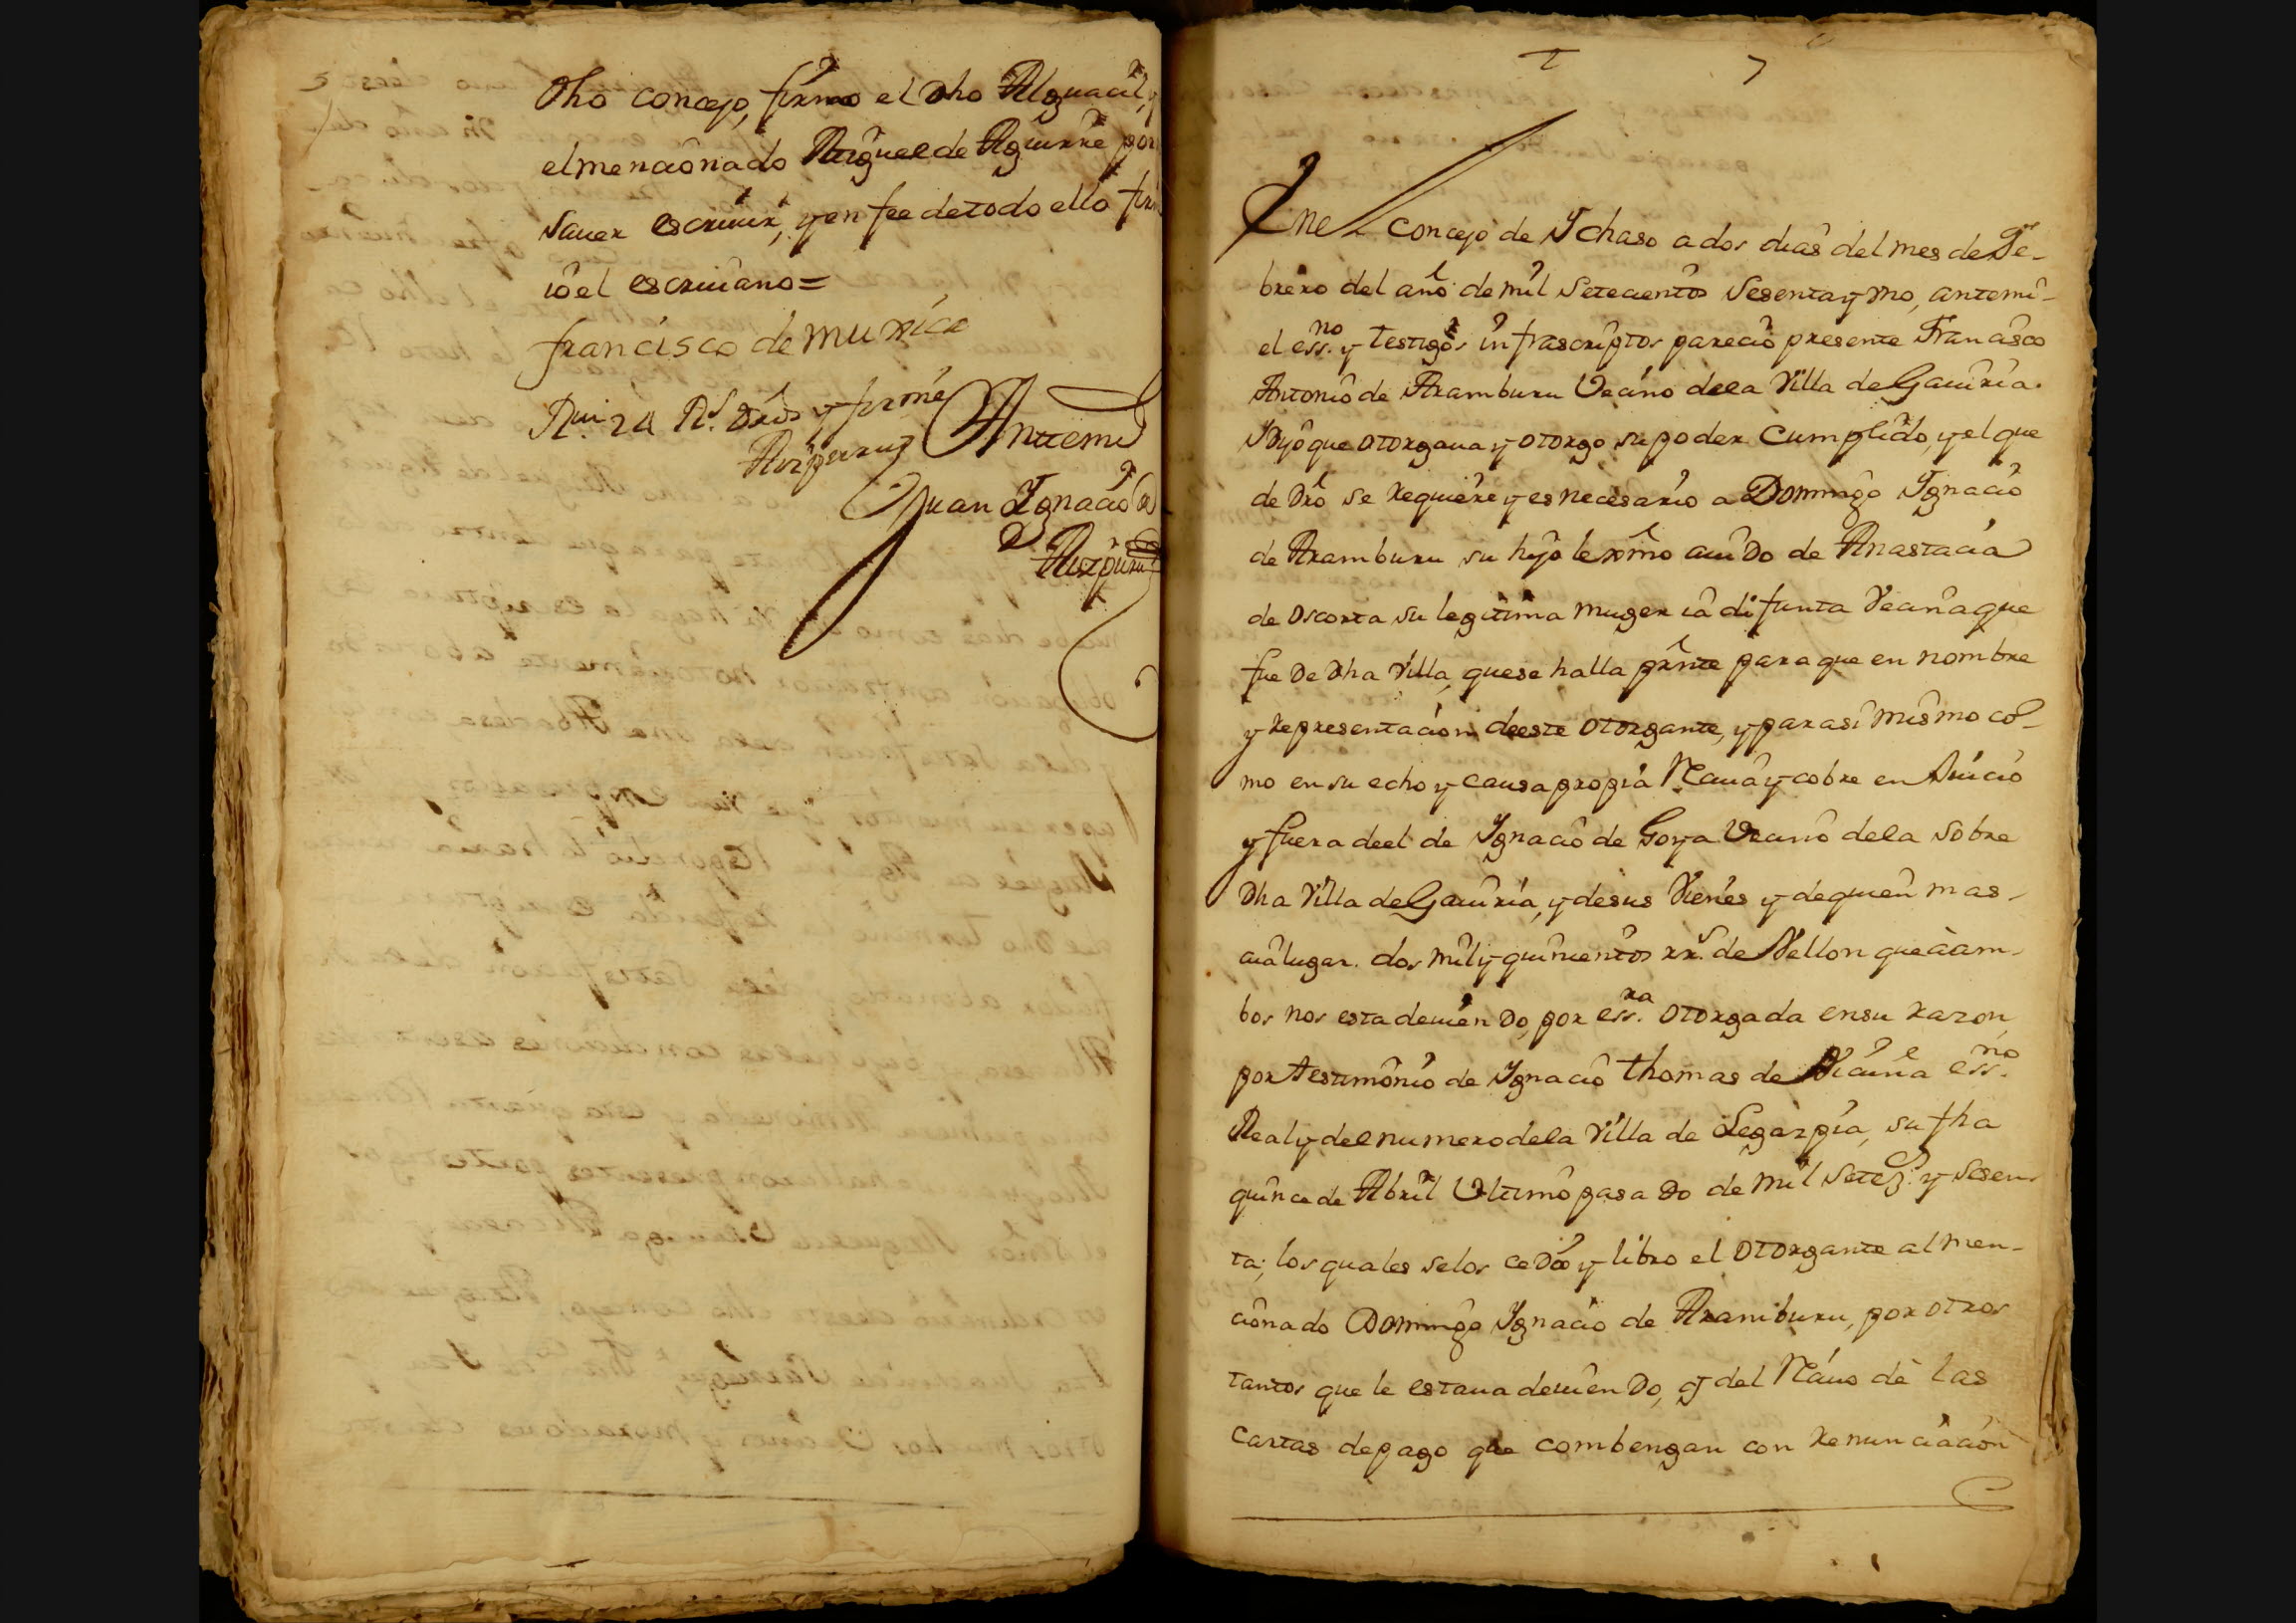 5
Dho concejo, firmo el dho Alguacil, y
el mencionado Miguel de Aguirre por
saver escriuir, y en fee de todo ello fir
io el escriuano=
francisco de muxica
Rui. 24 Rs. Drōs y firmé
Aizpuru
Antemi
Juan Ignacio de
Aizpuru
7
Enel concejo de Ychaso a dos dias del mes de Fe-
brero del año de mil Setecientos Sesenta y vno, antemi
el ess.no y testigos infrascriptos parecio presente Francisco
Antonio de Aramburu Vecino de la Villa de Gauiria.
Dijo que otorgaua y otorgo su poder Cumplido, y el que
de Dro se requiere y es necesario a Domingo Ignacio
de Aramburu su hijo lexmo auido de Anastacia
de Oscorta su legitima muger ia difunta Vecina que
fue de dha Villa, que se halla prnte para que en nombre
y representacion de este otorgante, y para si mismo co-
mo en su echo y causa propia Reciua y cobre en Juicio
y fuera de el de Ignacio de Goya Vecino de la Sobre
dha Villa de Gauiria, y de sus Vienes y de quien mas
aia lugar. dos mil y quinientos rrs. de Vellon que a am-
bos nos esta deuien do, por ess.ra otorgada en su razon,
por testimonio de Ignacio Thomas de Vicuña ess.no
Real y del numero de la Villa de Legazpia, su fha
quince de Abril Vltimo pasado de mil Setez.s y Sesen-
ta; los quales se los cedio y libro el otorgante al men-
cionado Domingo Ignacio de Aramburu, por otros
tantos que le estaua deuien do, y del Reciuo dè las
Cartas de pago que combengan con renunciacion